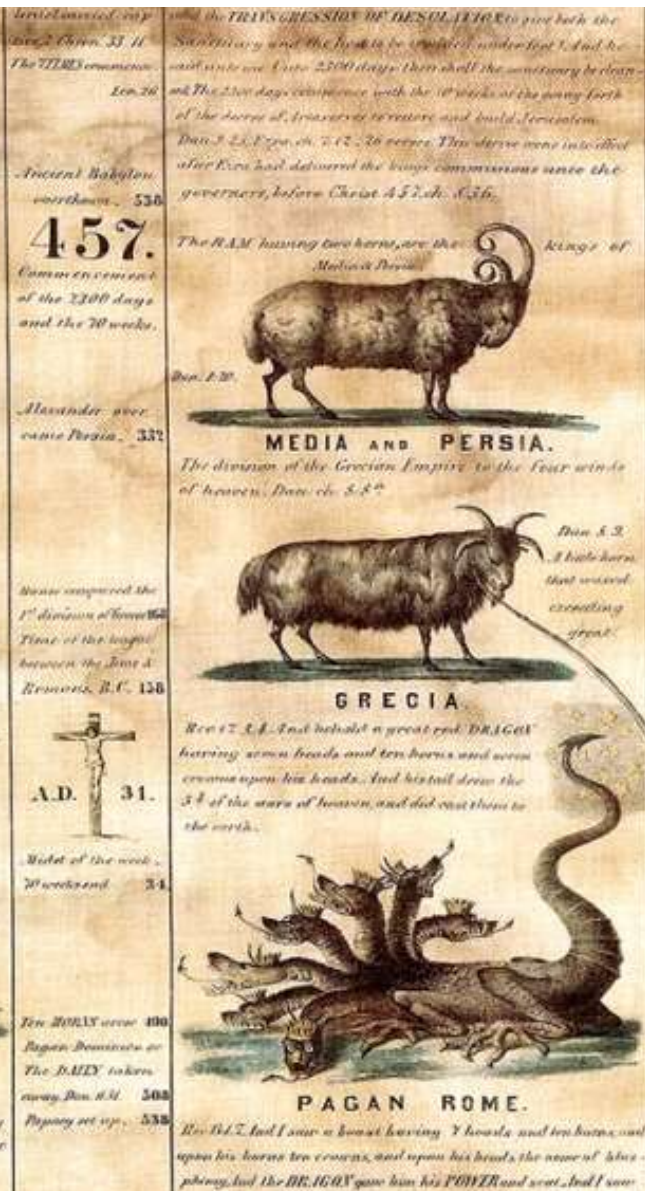 tive, 2 Chron. 33. 11
The 7 TIMES commence.
Lev. 26
Ancient Babylon
overthrown. 538
457.
Commencement
of the 2300 days
and the 70 weeks.
Alexander over
came Persia. 332
1st division of
Time of the league
between the Jews &
Romans, B.C. 158
A.D. 31.
Midst of the week.
70 weeks end 34
Ten HORNS arose 490
Pagan Dominion or
The DAILY taken
away. Dan. 11.31. 508
Papacy set up. 538
and the TRANSGRESSION OF DESOLATION to give both the
Sanctuary and the host to be trodden under foot? And he
said unto me Unto 2300 days then shall the sanctuary be clean-
ed. The 2300 days commence with the 70 weeks at the going forth
of the decree of Artaxerxes to restore and build Jerusalem
Dan. 9. 25. Ezra. ch. 7. 12, 26 verses. This decree went into effect
after Ezra had delivered the kings commissions unto the
governers, before Christ 457. ch. 8.36.
The RAM having two horns, are the kings of
Media & Persia.
Dan. 8. 20.
MEDIA AND PERSIA.
The division of the Grecian Empire to the four winds
of heaven. Dan. ch. 8. 8th
Dan 8. 9.
A little horn
that waxed
exceeding
great.
GRECIA
Rev 12 3,4. And behold a great red DRAGON
having seven heads and ten horns and seven
crowns upon his heads. And his tail drew the
3d of the stars of heaven, and did cast them to
the earth.
PAGAN ROME.
Rev. 13. 1, 2. And I saw a beast having 7 heads and ten horns, and
upon his horns ten crowns, and upon his heads the name of blas-
phemy, And the DRAGON gave him his POWER and seat. And I saw